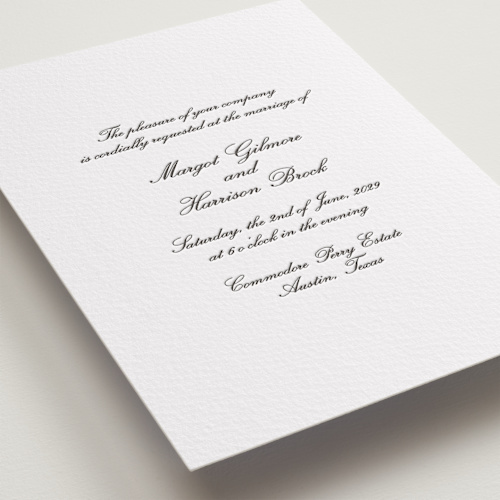 The pleasure of your company
is cordially requested at the marriage of
Margot Gilmore
and
Harrison Brock
Saturday, the 2nd of June, 2029
at 6 o'clock in the evening
Commodore Perry Estate
Austin, Texas